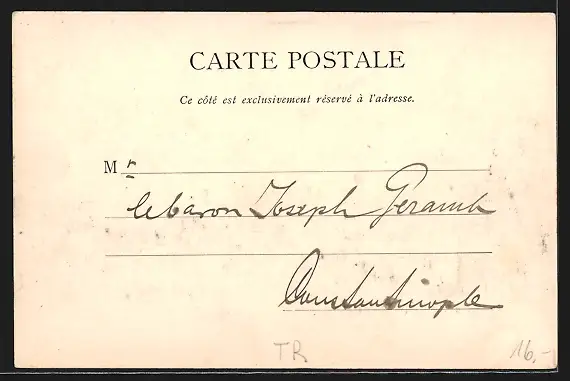 CARTE POSTALE
Ce côté est exclusivement réservé à l'adresse.
Mr
le baron Joseph Geramb
Constantinople
TR 16.-